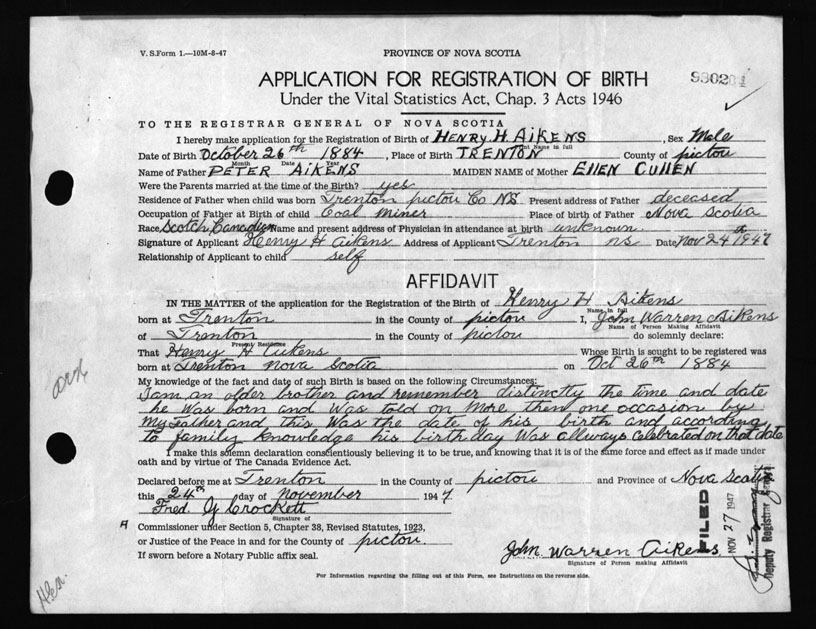 V. S. Form 1.—10M-8-47
PROVINCE OF NOVA SCOTIA
APPLICATION FOR REGISTRATION OF BIRTH
Under the Vital Statistics Act, Chap. 3 Acts 1946
TO THE REGISTRAR GENERAL OF NOVA SCOTIA
I hereby make application for the Registration of Birth of HENRY H AIKENS, Sex Male
Print Name in full
Date of Birth October 26th 1884, Place of Birth TRENTON County of pictou
Month Date Year
Name of Father PETER AIKENS MAIDEN NAME of Mother ELLEN CULLEN
Were the Parents married at the time of the Birth? yes
Residence of Father when child was born Trenton pictou Co NS. Present address of Father deceased
Occupation of Father at Birth of child Coal Miner Place of birth of Father Nova Scotia
Race Scotch Canadien Name and present address of Physician in attendance at birth unknown
Signature of Applicant Henry H Aikens Address of Applicant Trenton NS Date Nov 24th 1947
Relationship of Applicant to child self
AFFIDAVIT
IN THE MATTER of the application for the Registration of the Birth of Henry H Aikens
Name in full
born at Trenton in the County of pictou I, John Warren Aikens
Name of Person Making Affidavit
of Trenton in the County of pictou do solemnly declare:
Present Residence
That Henry H Aikens Whose Birth is sought to be registered was
born at Trenton Nova Scotia on Oct 26th 1884
My knowledge of the fact and date of such Birth is based on the following Circumstances:
I am an older brother and remember distinctly the time and date
he was born and was told on more then one occasion by
My Father and this was the date of his birth and according
to family knowledge his birthday was allways celebrated on that date
I make this solemn declaration conscientiously believing it to be true, and knowing that it is of the same force and effect as if made under
oath and by virtue of The Canada Evidence Act.
Declared before me at Trenton in the County of pictou and Province of Nova Scotia
this 24th day of November 1947
Fred. G Crockett
Signature of
A Commissioner under Section 5, Chapter 38, Revised Statutes, 1923,
or Justice of the Peace in and for the County of pictou.
If sworn before a Notary Public affix seal.
John Warren Aikens
Signature of Person making Affidavit
FILED
NOV 27 1947
Deputy Registrar
For Information regarding the filling out of this Form, see Instructions on the reverse side.